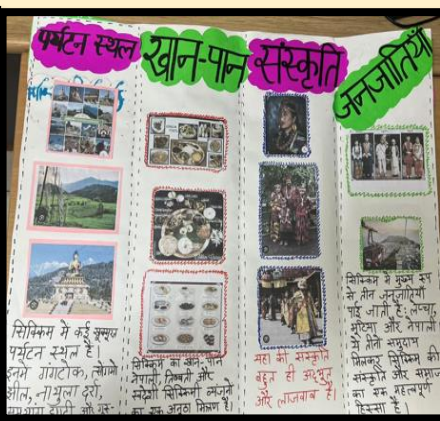 पर्यटन स्थल
सिक्किम में कई प्रमुख
पर्यटन स्थल हैं
इनमें गंगटोक, त्सोमगो
झील, नाथुला दर्रा,
घाटी और
खान-पान
सिक्किम का खान-पान
नेपाली, तिब्बती और
स्वदेशी सिक्किमी व्यंजनों
का एक अनूठा मिश्रण है।
संस्कृति
यहां की संस्कृति
बहुत ही अद्भुत
और लाजवाब है।
जनजातियाँ
सिक्किम में मुख्य रूप
से तीन जनजातियाँ
पाई जाती हैं: लेप्चा,
भूटिया और नेपाली
ये तीनों समुदाय
मिलकर सिक्किम की
संस्कृति और समाज
का एक महत्वपूर्ण
हिस्सा हैं।